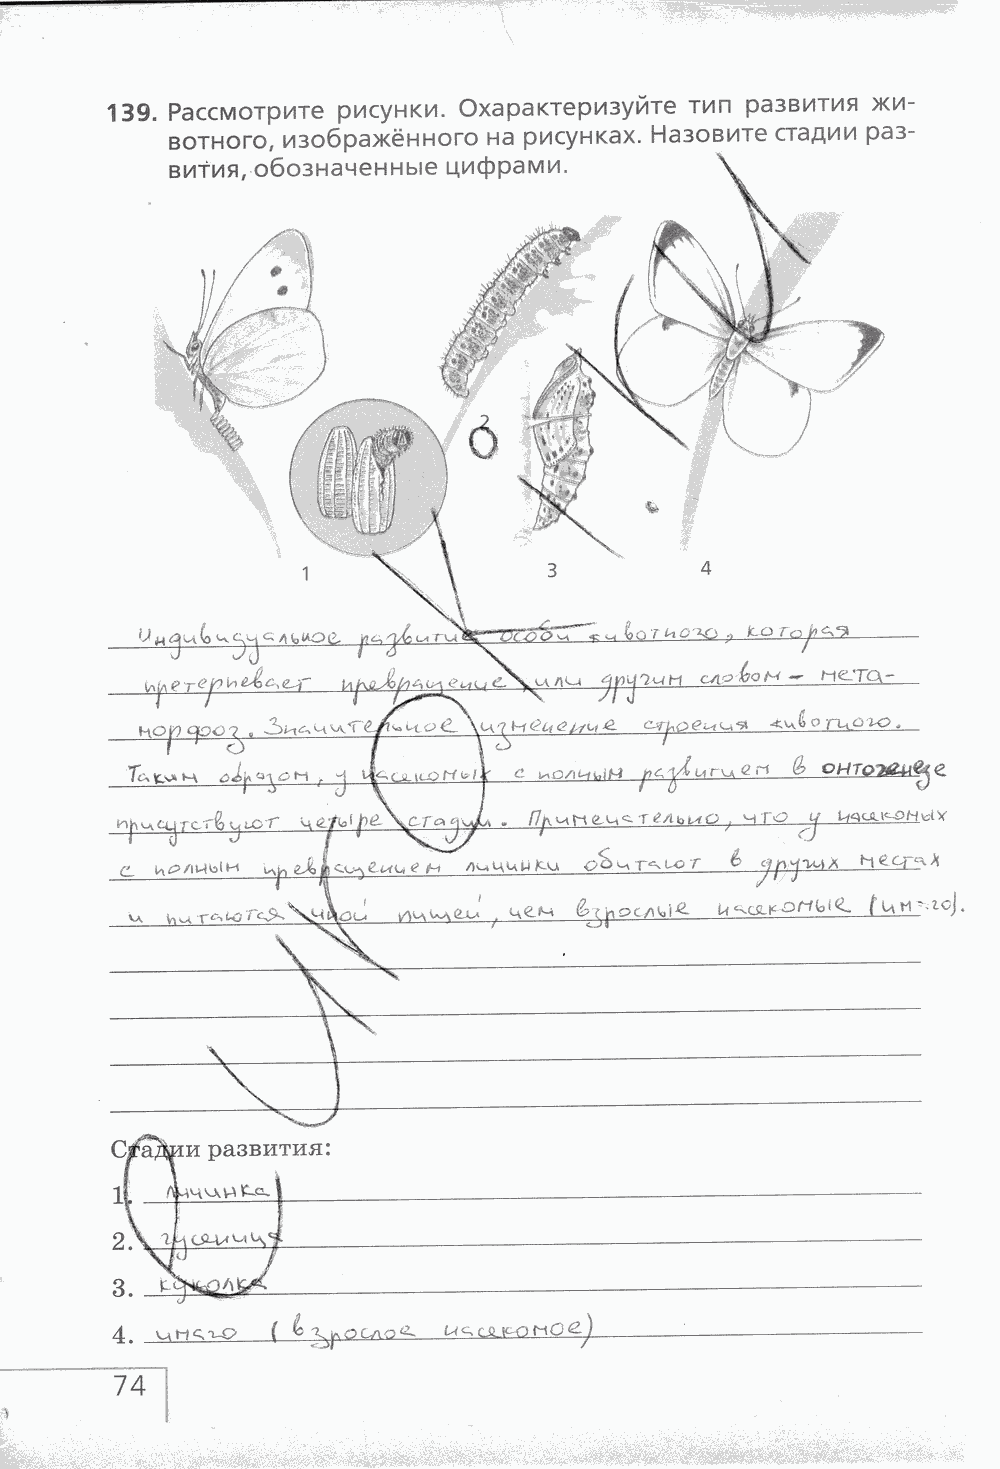 139. Рассмотрите рисунки. Охарактеризуйте тип развития жи-
вотного, изображённого на рисунках. Назовите стадии раз-
вития, обозначенные цифрами.
2
1
3
4
Индивидуальное развитие особи животного, которая
претерпевает превращение или другим словом – мета-
морфоз. Значительное изменение строения животного.
Таким образом, у насекомых с полным развитием в онтогенезе
присутствуют четыре стадии. Примечательно, что у насекомых
с полным превращением личинки обитают в других местах
и питаются иной пищей, чем взрослые насекомые (имаго).
Стадии развития:
1. личинка
2. гусеница
3. куколка
4. имаго (взрослое насекомое)
74